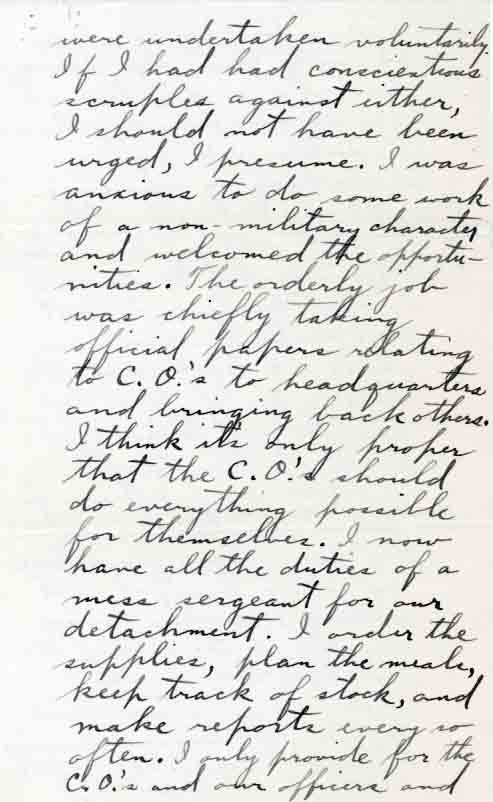 were undertaken voluntarily.
If I had had conscientious
scruples against either,
I should not have been
urged, I presume. I was
anxious to do some work
of a non-military character,
and welcomed the opportu-
nities. The orderly job
was chiefly taking
official papers relating
to C. O.'s to headquarters
and bringing back others.
I think it's only proper
that the C. O.'s should
do everything possible
for themselves. I now
have all the duties of a
mess sergeant for our
detachment. I order the
supplies, plan the meals,
keep track of stock, and
make reports every so
often. I only provide for the
C. O.'s and our officers and